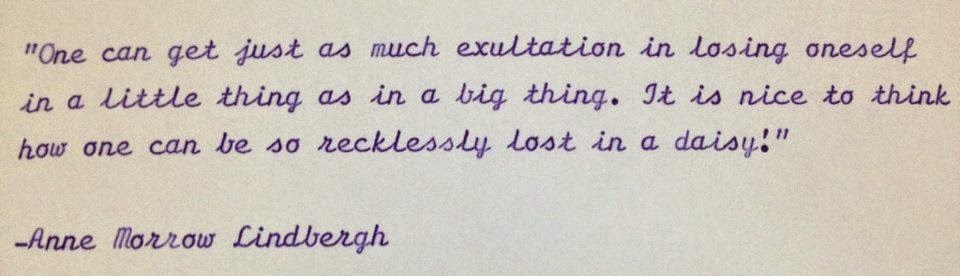 "One can get just as much exultation in losing oneself
in a little thing as in a big thing. It is nice to think
how one can be so recklessly lost in a daisy!"
-Anne Morrow Lindbergh